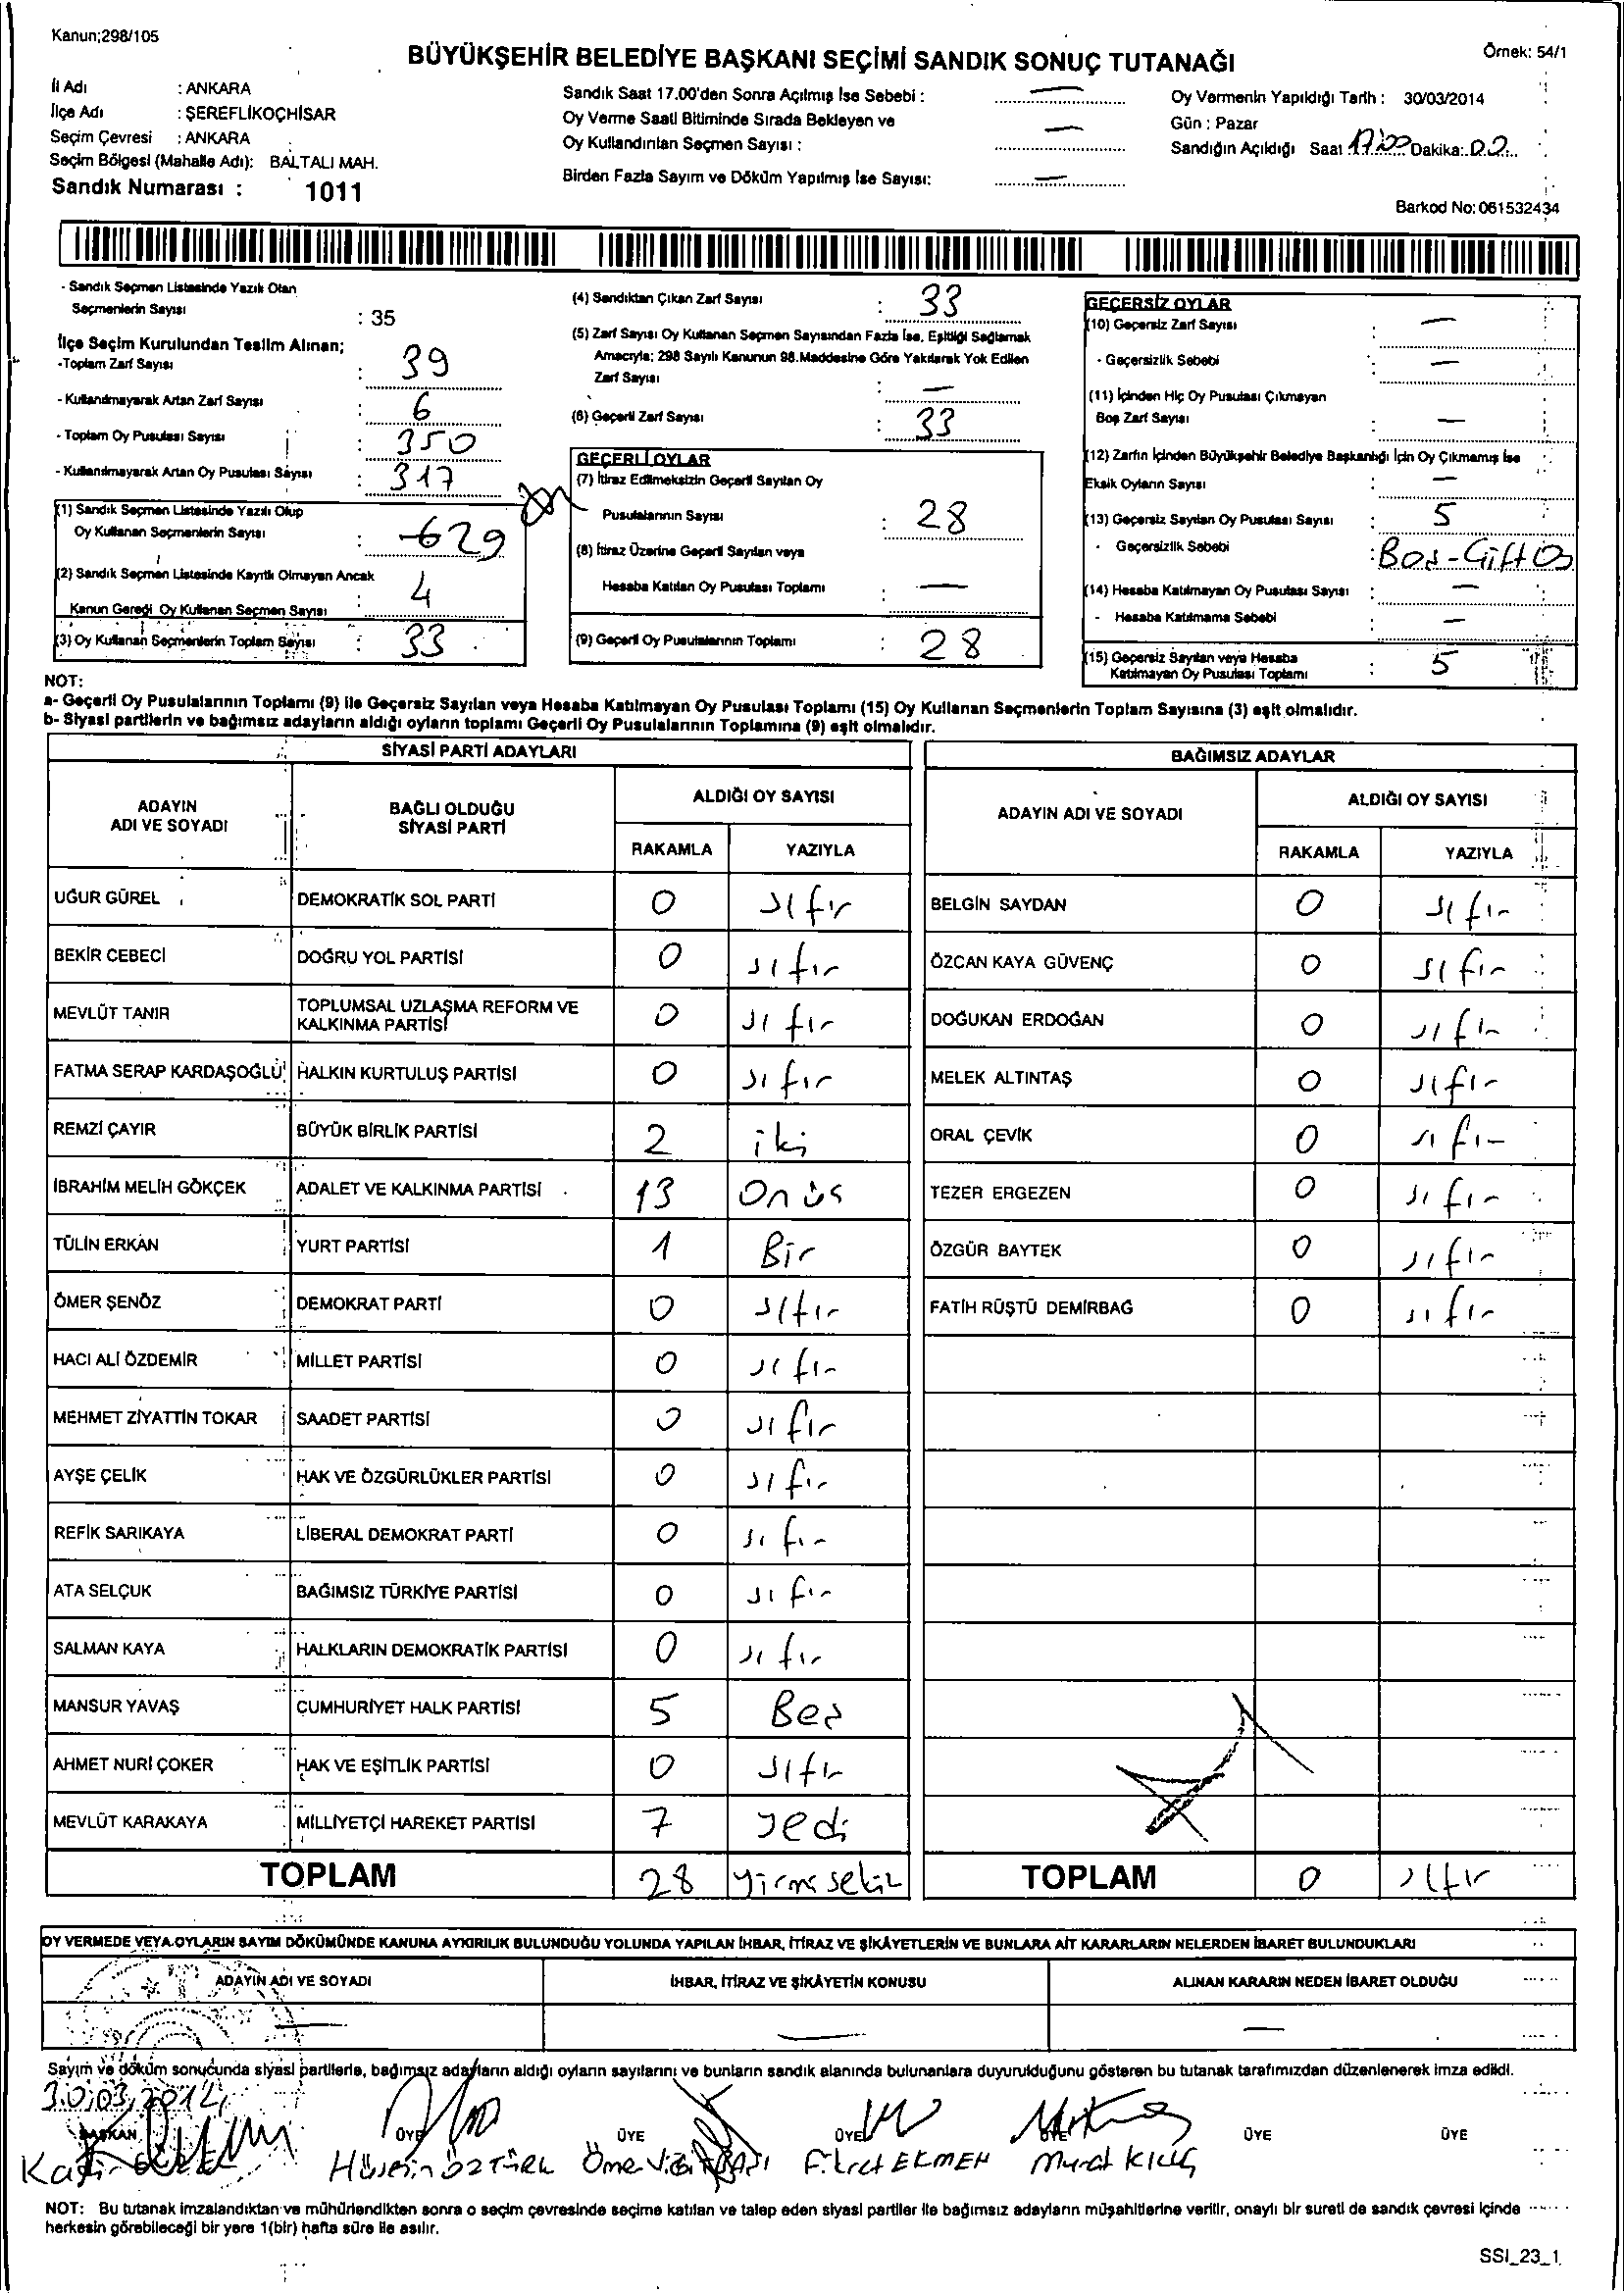 Kanun;298/105
BÜYÜKŞEHİR BELEDİYE BAŞKANI SEÇİMİ SANDIK SONUÇ TUTANAĞI
Örnek: 54/1
İl Adı : ANKARA
İlçe Adı : ŞEREFLİKOÇHİSAR
Seçim Çevresi : ANKARA
Seçim Bölgesi (Mahalle Adı): BALTALI MAH.
Sandık Numarası : 1011
Sandık Saat 17.00'den Sonra Açılmış İse Sebebi : —
Oy Verme Saati Bitiminde Sırada Bekleyen ve
Oy Kullandırılan Seçmen Sayısı : —
Birden Fazla Sayım ve Döküm Yapılmış İse Sayısı: —
Oy Vermenin Yapıldığı Tarih : 30/03/2014
Gün : Pazar
Sandığın Açıldığı Saat 17:00 Dakika:.00
Barkod No: 061532434
- Sandık Seçmen Listesinde Yazılı Olan
Seçmenlerin Sayısı : 35
İlçe Seçim Kurulundan Teslim Alınan;
-Toplam Zarf Sayısı : 39
- Kullanılmayarak Artan Zarf Sayısı : 6
- Toplam Oy Pusulası Sayısı : 350
- Kullanılmayarak Artan Oy Pusulası Sayısı : 317
(1) Sandık Seçmen Listesinde Yazılı Olup
Oy Kullanan Seçmenlerin Sayısı : 29
(2) Sandık Seçmen Listesinde Kayıtlı Olmayan Ancak
Kanun Gereği Oy Kullanan Seçmen Sayısı : 4
(3) Oy Kullanan Seçmenlerin Toplam Sayısı : 33
(4) Sandıktan Çıkan Zarf Sayısı : 33
(5) Zarf Sayısı Oy Kullanan Seçmen Sayısından Fazla İse, Eşitliği Sağlamak
Amacıyla; 298 Sayılı Kanunun 98.Maddesine Göre Yakılarak Yok Edilen
Zarf Sayısı : —
(6) Geçerli Zarf Sayısı : 33
GEÇERLİ OYLAR
(7) İtiraz Edilmeksizin Geçerli Sayılan Oy
Pusulalarının Sayısı : 28
(8) İtiraz Üzerine Geçerli Sayılan veya
Hesaba Katılan Oy Pusulası Toplamı : —
(9) Geçerli Oy Pusulalarının Toplamı : 28
GEÇERSİZ OYLAR
(10) Geçersiz Zarf Sayısı : —
- Geçersizlik Sebebi : —
(11) İçinden Hiç Oy Pusulası Çıkmayan
Boş Zarf Sayısı : —
(12) Zarfın İçinden Büyükşehir Belediye Başkanlığı İçin Oy Çıkmamış İse
Eksik Oyların Sayısı : —
(13) Geçersiz Sayılan Oy Pusulası Sayısı : 5
- Geçersizlik Sebebi : Boş-Çift Oy
(14) Hesaba Katılmayan Oy Pusulası Sayısı : —
- Hesaba Katılmama Sebebi : —
(15) Geçersiz Sayılan veya Hesaba
Katılmayan Oy Pusulası Toplamı : 5
NOT:
a- Geçerli Oy Pusulalarının Toplamı (9) ile Geçersiz Sayılan veya Hesaba Katılmayan Oy Pusulası Toplamı (15) Oy Kullanan Seçmenlerin Toplam Sayısına (3) eşit olmalıdır.
b- Siyasi partilerin ve bağımsız adayların aldığı oyların toplamı Geçerli Oy Pusulalarının Toplamına (9) eşit olmalıdır.
SİYASİ PARTİ ADAYLARI
BAĞIMSIZ ADAYLAR
ADAYIN ADI VE SOYADI
BAĞLI OLDUĞU SİYASİ PARTİ
ALDIĞI OY SAYISI
RAKAMLA YAZIYLA
ADAYIN ADI VE SOYADI
ALDIĞI OY SAYISI
RAKAMLA YAZIYLA
UĞUR GÜREL DEMOKRATİK SOL PARTİ 0 sıfır BELGİN SAYDAN 0 sıfır
BEKİR CEBECİ DOĞRU YOL PARTİSİ 0 sıfır ÖZCAN KAYA GÜVENÇ 0 sıfır
MEVLÜT TANIR TOPLUMSAL UZLAŞMA REFORM VE KALKINMA PARTİSİ 0 sıfır DOĞUKAN ERDOĞAN 0 sıfır
FATMA SERAP KARDAŞOĞLU HALKIN KURTULUŞ PARTİSİ 0 sıfır MELEK ALTINTAŞ 0 sıfır
REMZİ ÇAYIR BÜYÜK BİRLİK PARTİSİ 2 iki ORAL ÇEVİK 0 sıfır
İBRAHİM MELİH GÖKÇEK ADALET VE KALKINMA PARTİSİ 13 Onüç TEZER ERGEZEN 0 sıfır
TÜLİN ERKAN YURT PARTİSİ 1 Bir ÖZGÜR BAYTEK 0 sıfır
ÖMER ŞENÖZ DEMOKRAT PARTİ 0 sıfır FATİH RÜŞTÜ DEMİRBAĞ 0 sıfır
HACI ALİ ÖZDEMİR MİLLET PARTİSİ 0 sıfır
MEHMET ZİYATTİN TOKAR SAADET PARTİSİ 0 sıfır
AYŞE ÇELİK HAK VE ÖZGÜRLÜKLER PARTİSİ 0 sıfır
REFİK SARIKAYA LİBERAL DEMOKRAT PARTİ 0 sıfır
ATA SELÇUK BAĞIMSIZ TÜRKİYE PARTİSİ 0 sıfır
SALMAN KAYA HALKLARIN DEMOKRATİK PARTİSİ 0 sıfır
MANSUR YAVAŞ CUMHURİYET HALK PARTİSİ 5 Beş
AHMET NURİ ÇOKER HAK VE EŞİTLİK PARTİSİ 0 sıfır
MEVLÜT KARAKAYA MİLLİYETÇİ HAREKET PARTİSİ 7 yedi
TOPLAM 28 yirmi sekiz TOPLAM 0 sıfır
OY VERMEDE VEYA OYLARIN SAYIM DÖKÜMÜNDE KANUNA AYKIRILIK BULUNDUĞU YOLUNDA YAPILAN İHBAR, İTİRAZ VE ŞİKÂYETLERİN VE BUNLARA AİT KARARLARIN NELERDEN İBARET BULUNDUKLARI
ADAYIN ADI VE SOYADI İHBAR, İTİRAZ VE ŞİKÂYETİN KONUSU ALINAN KARARIN NEDEN İBARET OLDUĞU
— — —
Sayım ve döküm sonucunda siyasi partilerle, bağımsız adayların aldığı oyların sayılarını ve bunların sandık alanında bulunanlara duyurulduğunu gösteren bu tutanak tarafımızdan düzenlenerek imza edildi.
30.03.2014
BAŞKAN ÜYE ÜYE ÜYE ÜYE ÜYE ÜYE
Hüseyin ÖZTÜRK Ömer Fikret EKMEN Murat KILIÇ
NOT: Bu tutanak imzalandıktan ve mühürlendikten sonra o seçim çevresinde seçime katılan ve talep eden siyasi partiler ile bağımsız adayların müşahitlerine verilir, onaylı bir sureti de sandık çevresi içinde
herkesin görebileceği bir yere 1(bir) hafta süre ile asılır.
SSI_23_1